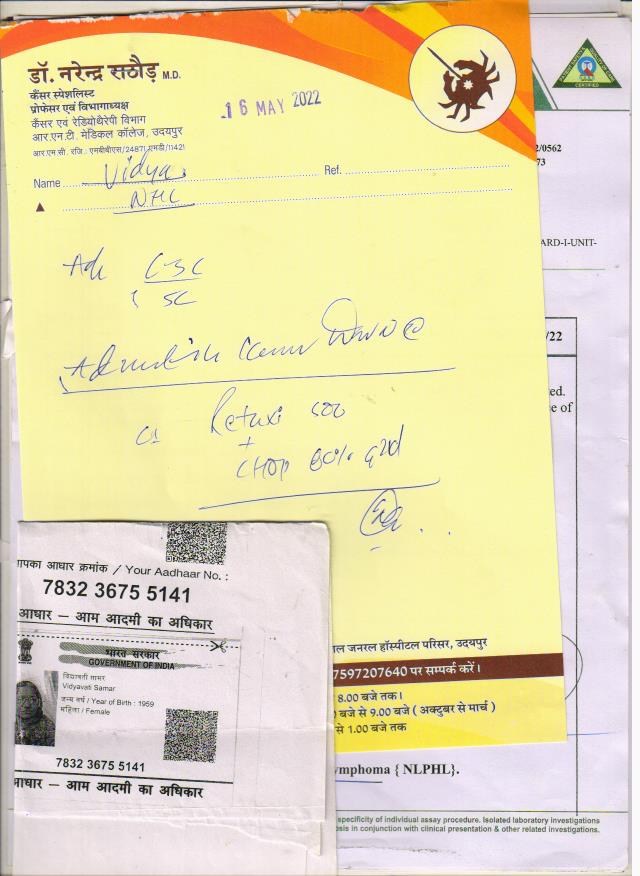 डॉ. नरेन्द्र राठौड़ M.D.
कैंसर स्पेशलिस्ट
प्रोफेसर एवं विभागाध्यक्ष
कैंसर एवं रेडियोथैरेपी विभाग
आर.एन.टी. मेडिकल कॉलेज, उदयपुर
आर.एम.सी. रजि.: एमबीबीएस/24871 एमडी/11421
16 MAY 2022
CERTIFIED
2/0562
73
Name Vidya Ref.
NHL
ARD-I-UNIT-
Adv CBC
SC
/22
ed.
e of
500
+
CHOP 80%
आपका आधार क्रमांक / Your Aadhaar No. :
7832 3675 5141
आधार – आम आदमी का अधिकार
भारत सरकार
GOVERNMENT OF INDIA
विद्यावती सामर
Vidyavati Samar
जन्म वर्ष / Year of Birth : 1959
महिला / Female
7832 3675 5141
आधार – आम आदमी का अधिकार
ल जनरल हॉस्पीटल परिसर, उदयपुर
7597207640 पर सम्पर्क करें।
8.00 बजे तक।
बजे से 9.00 बजे ( अक्टुबर से मार्च )
से 1.00 बजे तक
ymphoma { NLPHL}.
specificity of individual assay procedure. Isolated laboratory investigations
osis in conjunction with clinical presentation & other related investigations.